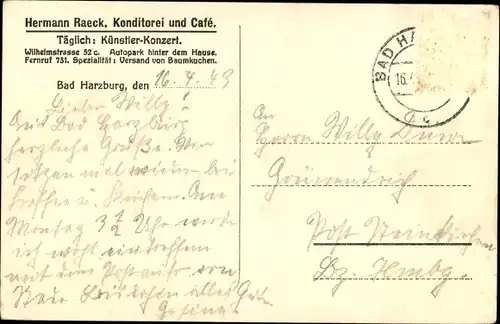 Hermann Raeck, Konditorei und Café.
Täglich: Künstler-Konzert.
Wilhelmstrasse 52c. Autopark hinter dem Hause.
Fernruf 731. Spezialität: Versand von Baumkuchen.
Bad Harzburg, den 16.4.49
Lieber Willy!
Aus Bad Harzburg
herzliche Grüße. Wir
sitzen mal wieder bei
Kaffee u. Kuchen. Am
Montag 3 1/2 Uhr werde
ich wohl eintreffen
mit dem Postauto von
alles Gute
BAD HA
16.
An
Herrn Willy
Post
Bz. Hmbg.